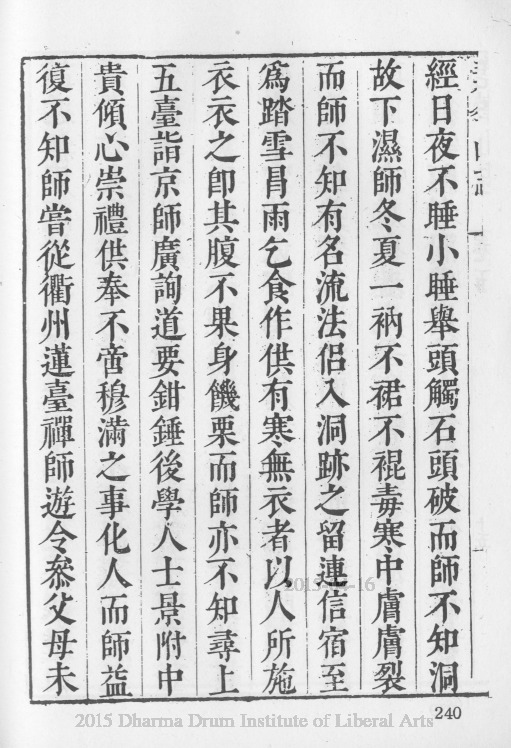 經日夜不睡小睡舉頭觸石頭破而師不知洞
故下濕師冬夏一衲不裙不裩毒寒中膚膚裂
而師不知有名流法侶入洞跡之留連信宿至
為踏雪冐雨乞食作供有寒無衣者以人所施
衣衣之卽其腹不果身饑栗而師亦不知尋上
五臺詣京師廣詢道要鉗錘後學人士景附中
貴傾心崇禮供奉不啻穆滿之事化人而師益
復不知師嘗從衢州蓮臺禪師遊令叅父母未
240
2015 Dharma Drum Institute of Liberal Arts